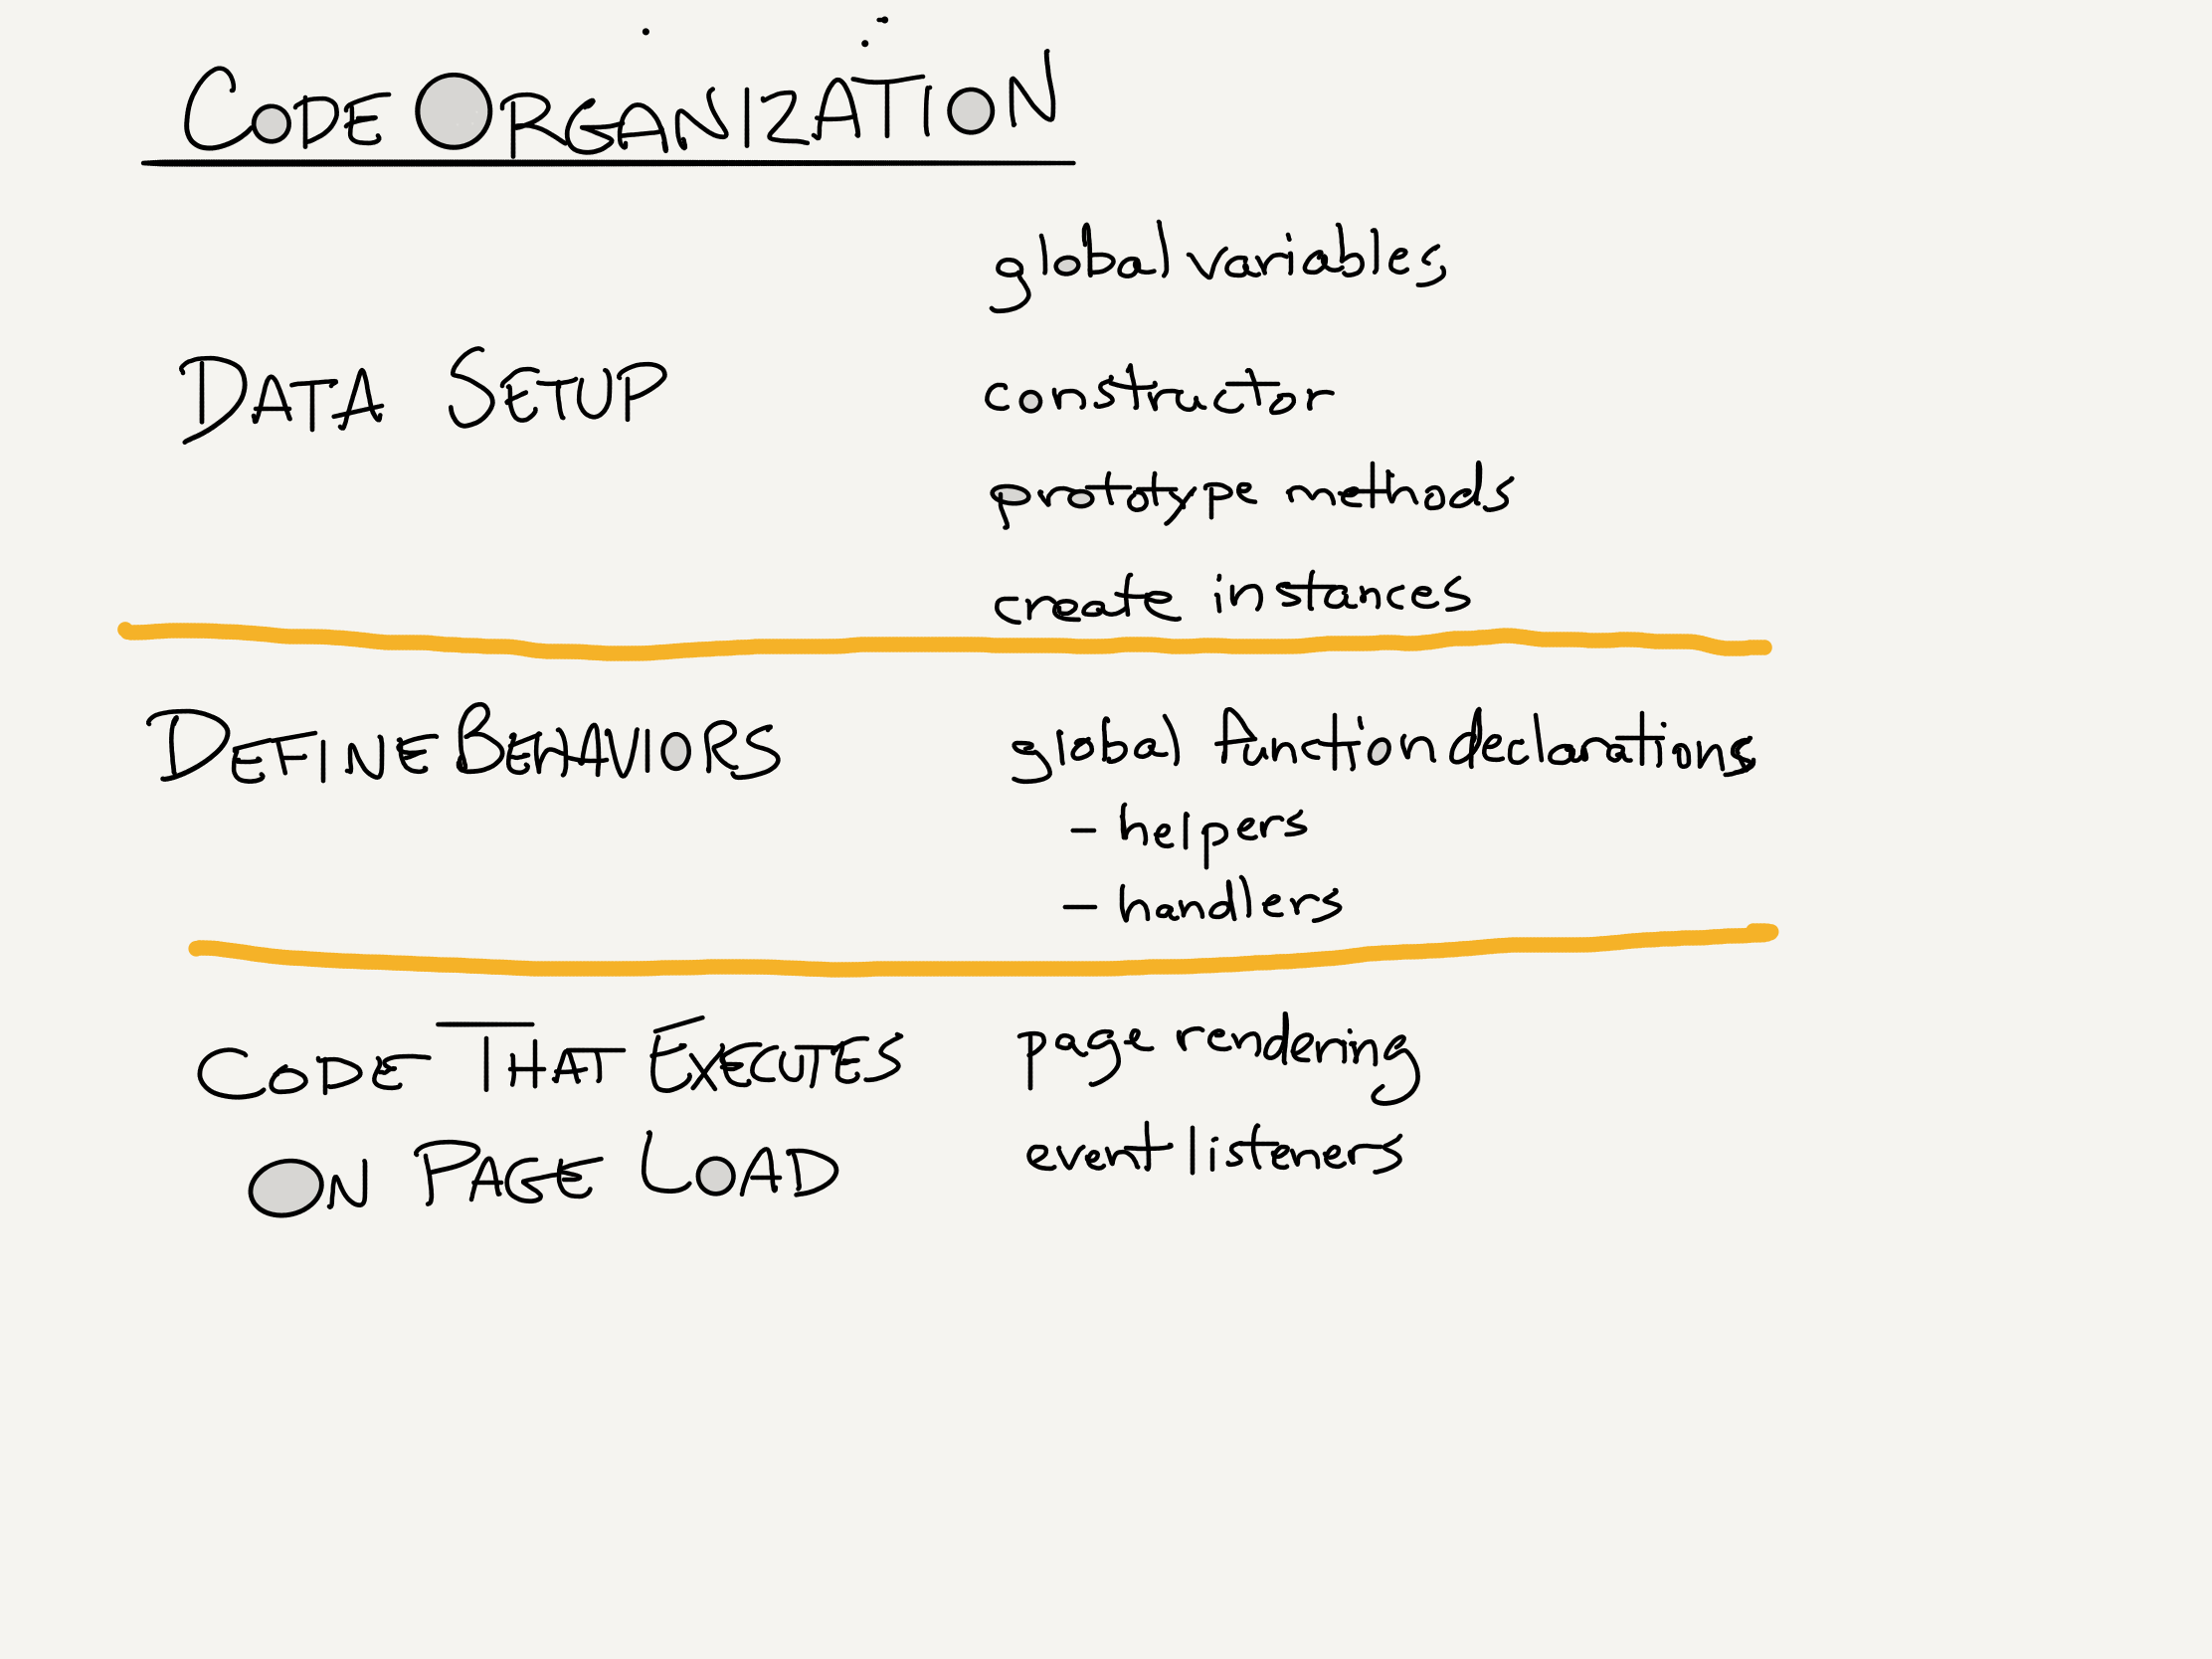 CODE ORGANIZATION
global variables
DATA SETUP
constructor
prototype methods
create instances
DEFINE BEHAVIORS
global function declarations
- helpers
- handlers
CODE THAT EXECUTES
ON PAGE LOAD
page rendering
event listeners